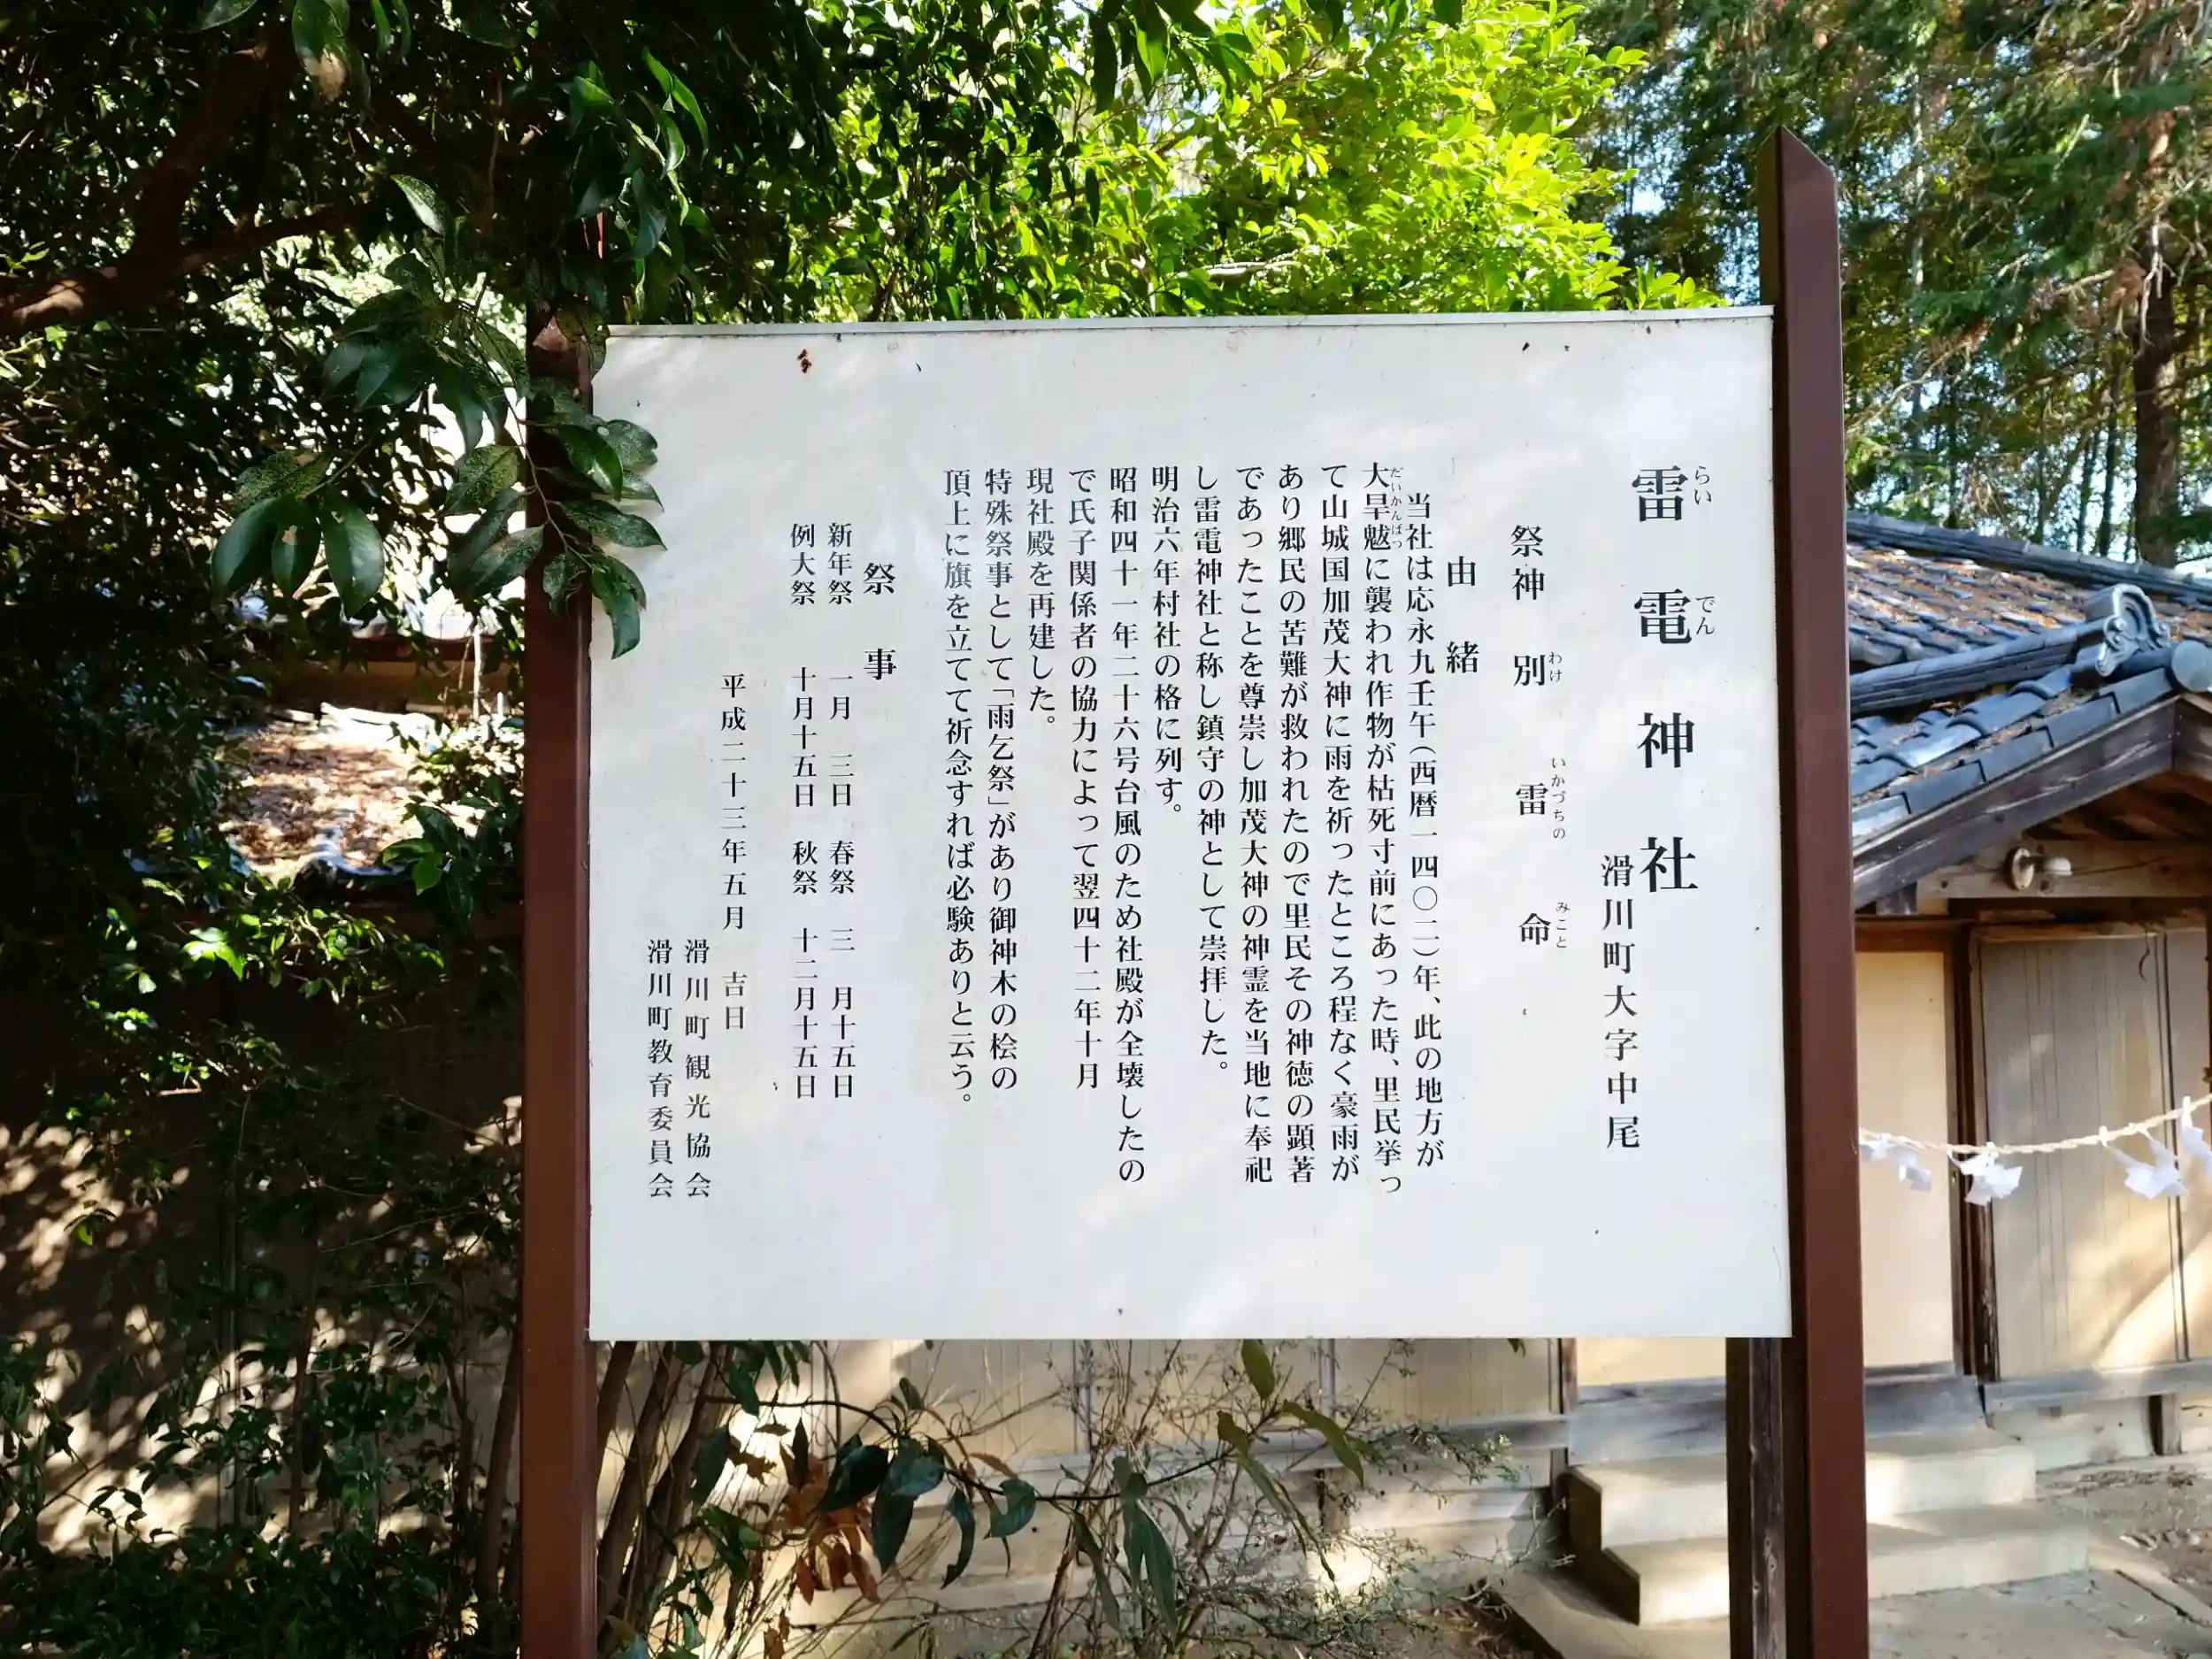 雷電神社
らいでん
滑川町大字中尾
祭神 別雷命
わけ いかづちの みこと
由緒
当社は応永九壬午(西暦一四〇二)年、此の地方が
大旱魃に襲われ作物が枯死寸前にあった時、里民挙っ
だいかんばつ
て山城国加茂大神に雨を祈ったところ程なく豪雨が
あり郷民の苦難が救われたので里民その神徳の顕著
であったことを尊崇し加茂大神の神霊を当地に奉祀
し雷電神社と称し鎮守の神として崇拝した。
明治六年村社の格に列す。
昭和四十一年二十六号台風のため社殿が全壊したの
で氏子関係者の協力によって翌四十二年十月
現社殿を再建した。
特殊祭事として「雨乞祭」があり御神木の桧の
頂上に旗を立てて祈念すれば必験ありと云う。
祭事
新年祭 一月 三日 春祭 三 月十五日
例大祭 十月十五日 秋祭 十二月十五日
平成二十三年五月 吉日
滑川町観光協会
滑川町教育委員会